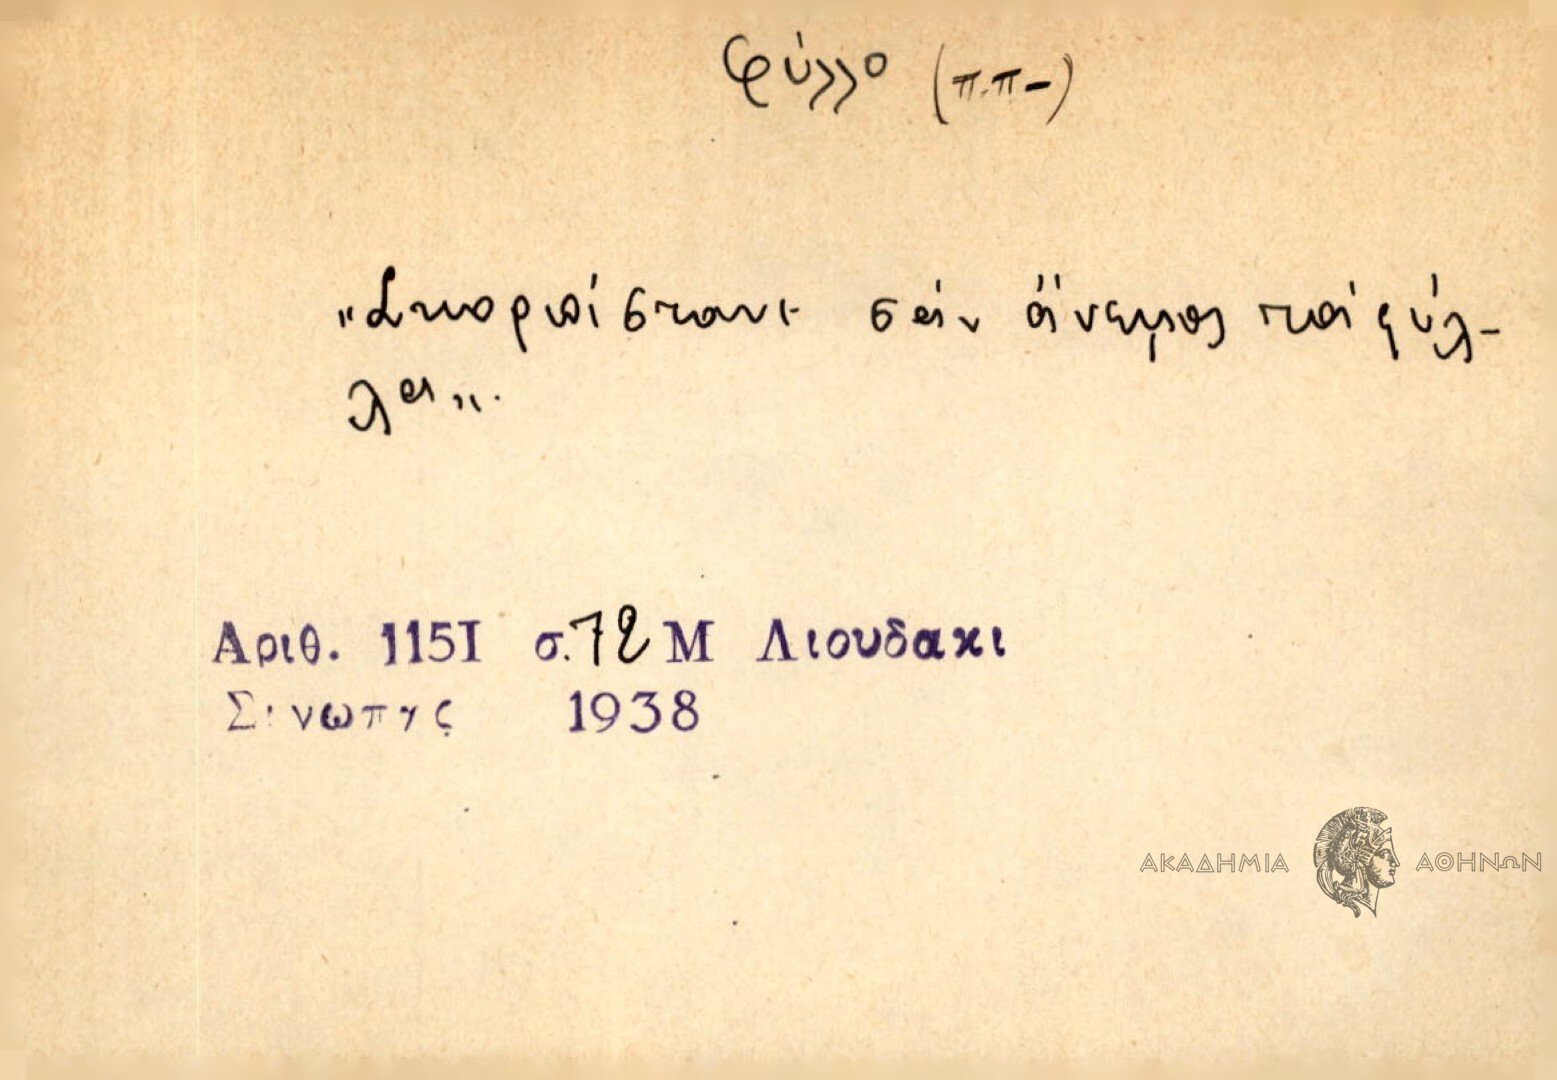 φύλλο (π.π-)
"Σκορπίσταν σὰν ἄνεμος τὰ φύλ-
λα".
Αριθ. 1151 σ.72 Μ Λιουδακι
Σινωπης 1938
ΑΚΑΔΗΜΙΑ ΑΘΗΝΩΝ